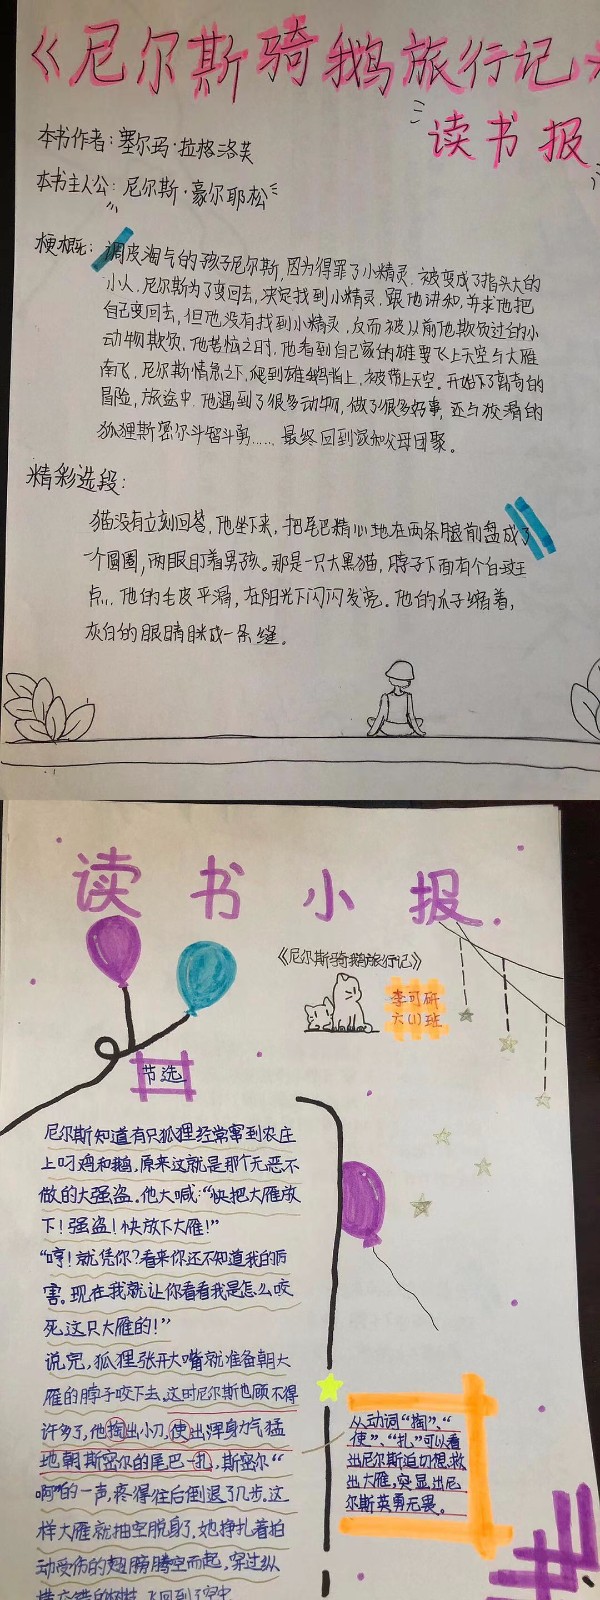 《尼尔斯骑鹅旅行记》
读书报
本书作者：塞尔玛·拉格洛芙
本书主人公：尼尔斯·豪尔耶松
梗概：调皮淘气的孩子尼尔斯，因为得罪了小精灵，被变成了指头大的
小人，尼尔斯为了变回去，决定找到小精灵，跟他讲和，并求他把
自己变回去，但他没有找到小精灵，反而被从前他欺负过的小
动物欺负，他苦恼之时，他看到自己家的雄要飞上天空与大雁
南飞，尼尔斯情急之下，爬到雄鹅背上，被带上天空。开始了离奇的
冒险，旅途中，他遇到了很多动物，做了很多好事，还与狡滑的
狐狸斯密尔斗智斗勇……最终回到家和父母团聚。
精彩选段：
猫没有立刻回答，他坐下来，把尾巴精心地在两条腿前盘成了
一个圆圈，两眼盯着男孩。那是一只大黑猫，脖子下面有个白斑
点，他的毛皮平滑，在阳光下闪闪发亮。他的爪子缩着，
灰白的眼睛眯成一条缝。
读书小报
《尼尔斯骑鹅旅行记》
李可研
六(1)班
节选
尼尔斯知道有只狐狸经常窜到农庄
上叼鸡和鹅，原来这就是那个无恶不
做的大强盗。他大喊：“快把大雁放
下！强盗！快放下大雁！”
“哼！就凭你？看来你还不知道我的厉
害。现在我就让你看看我是怎么咬
死这只大雁的！”
说完，狐狸张开大嘴就准备朝大
雁的脖子咬下去，这时尼尔斯也顾不得
许多了，他掏出小刀，使出浑身力气猛
地朝斯密尔的尾巴一扎，斯密尔“
啊”的一声，疼得往后倒退了几步。这
样大雁就抽空脱身了，她挣扎着拍
动受伤的翅膀腾空而起，穿过纵
横交错的树枝，飞回到了空中
从动词“掏”、“
使”、“扎”可以看
出尼尔斯迫切想救
出大雁，突显出尼
尔斯英勇无畏。